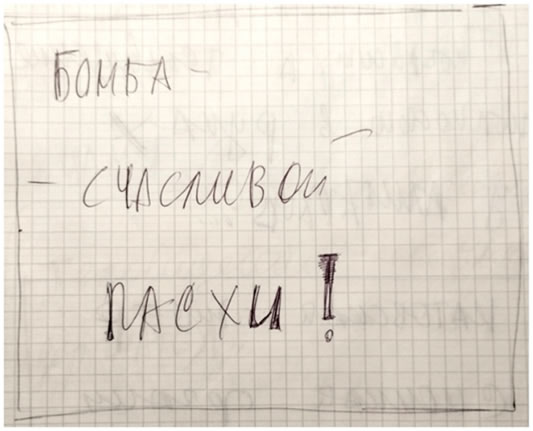 БОМБА -
- СЧАСЛИВОЙ
ПАСХИ!